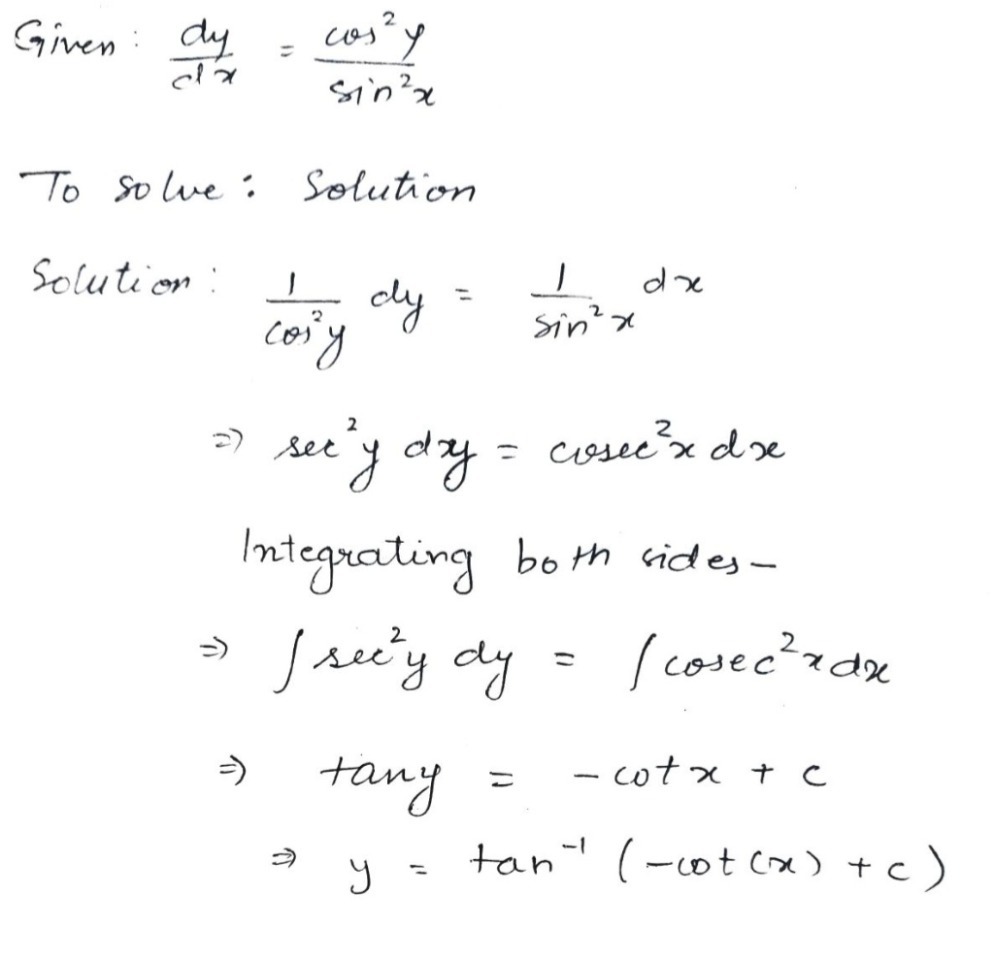 Given: dy/dx = cos²y/sin²x
To solve: Solution
Solution: 1/cos²y dy = 1/sin²x dx
⇒ sec²y dy = cosec²x dx
Integrating both sides-
⇒ ∫sec²y dy = ∫cosec²x dx
⇒ tany = -cotx + c
⇒ y = tan⁻¹ (-cot(x) + c)